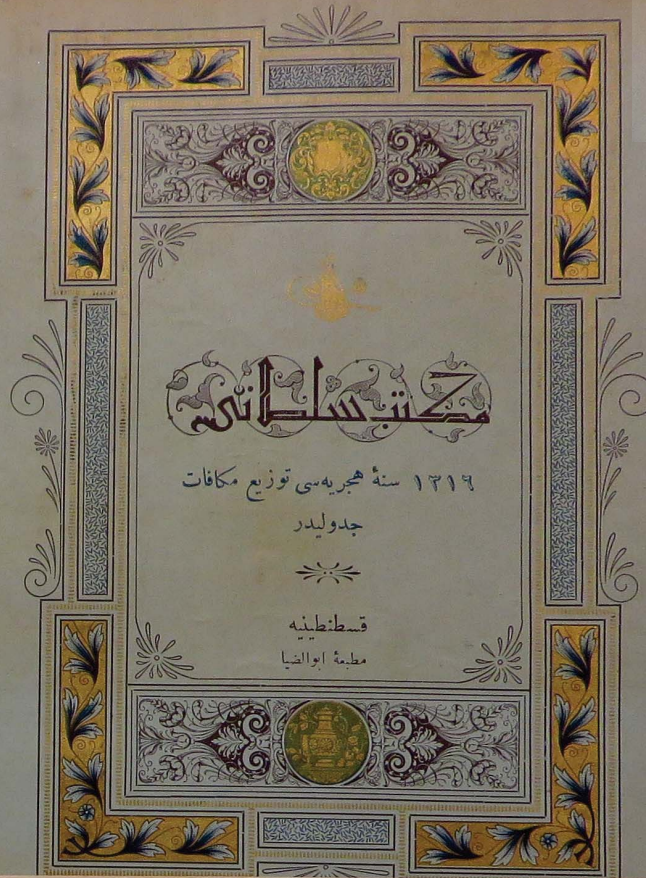 مكتب سلطانى
١٣١٦ سنۀ هجريه‌سى توزيع مكافات
جدوليدر
قسطنطينيه
مطبعۀ ابوالضيا